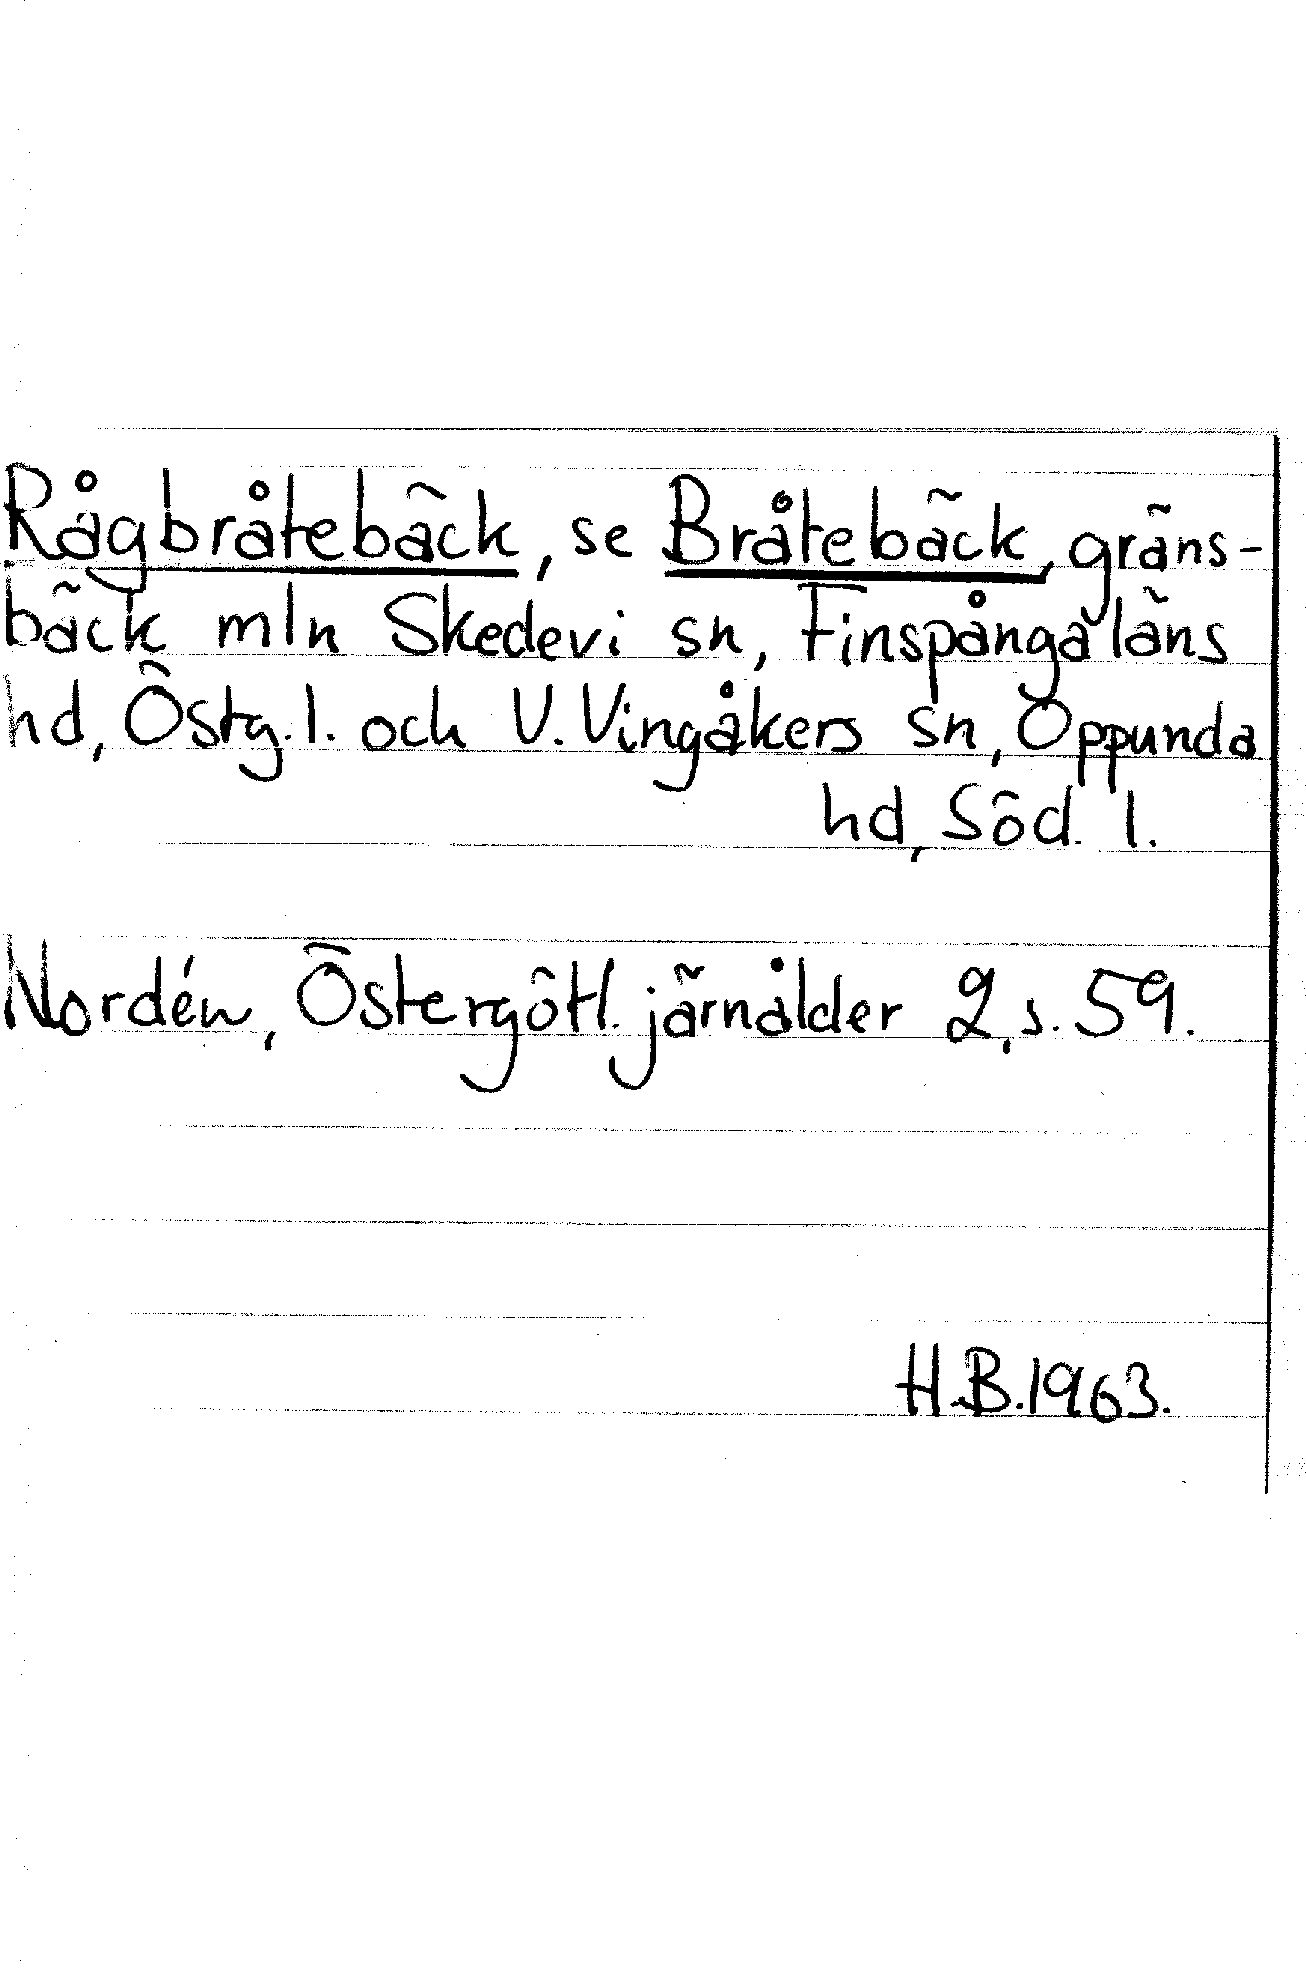 Rågbråtebäck, se Bråtebäck, gräns-
bäck mln Skedevi sn, Finspånga läns
hd, Östg. l. och V. Vingåkers sn, Oppunda
hd, Söd. l.
Nordén, Östergötl. järnålder 2, s. 59.
H.B. 1963.